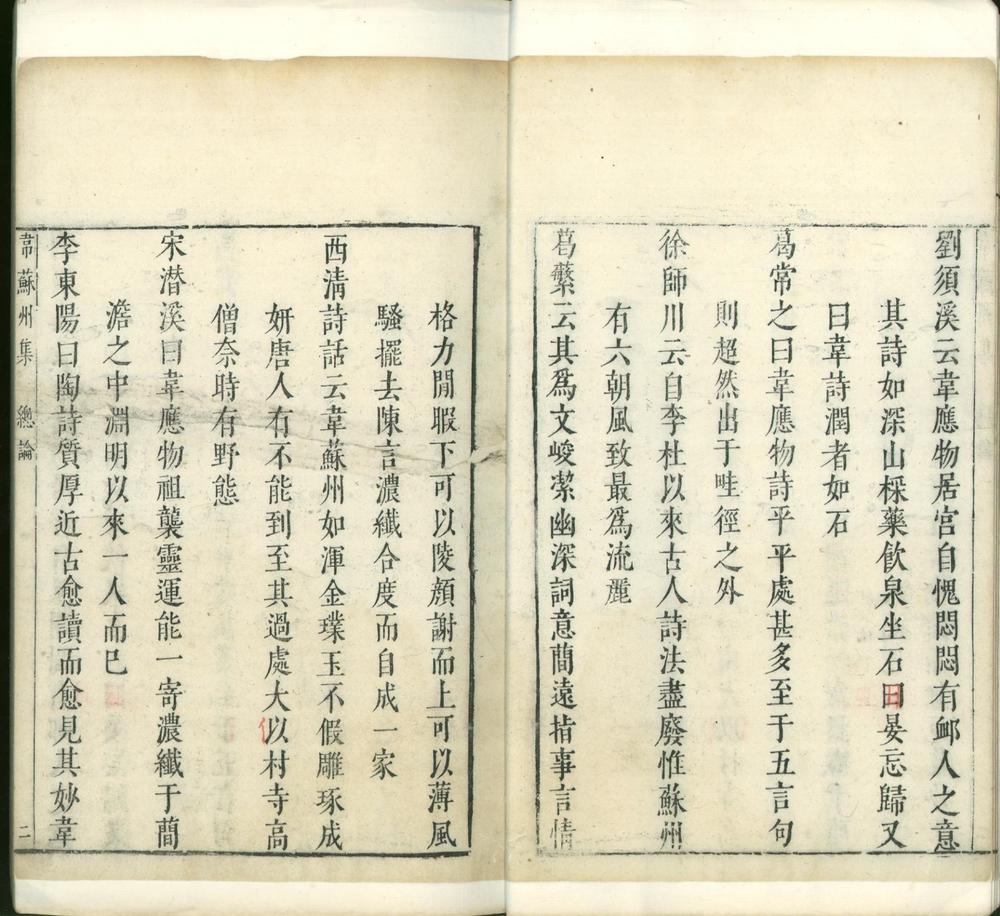 劉須溪云韋應物居宮自愧悶悶有䘏人之意
其詩如深山採藥飲泉坐石日晏忘歸又
曰韋詩潤者如石
葛常之曰韋應物詩平平處甚多至于五言句
則超然出于畦徑之外
徐師川云自李杜以來古人詩法盡廢惟蘇州
有六朝風致最爲流麗
葛蘩云其爲文峻潔幽深詞意蕑遠指事言情
格力閒暇下可以陵顏謝而上可以薄風
騷擺去陳言濃纖合度而自成一家
西清詩話云韋蘇州如渾金璞玉不假雕琢成
妍唐人有不能到至其過處大以村寺高
僧奈時有野態
宋潛溪曰韋應物祖襲靈運能一寄濃纖于蕑
澹之中淵明以來一人而已
李東陽曰陶詩質厚近古愈讀而愈見其妙韋
韋蘇州集 總論 二